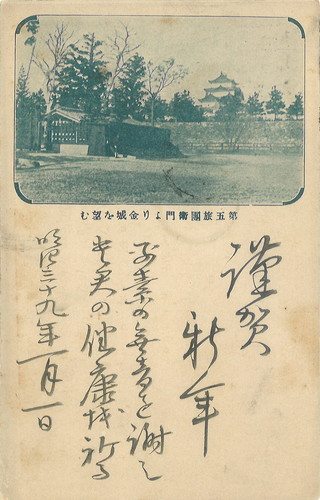 第五旅團衛門より金城を望む
謹賀
新年
平素の無音を謝し
貴兄の健康を祈る
明治三十九年一月一日